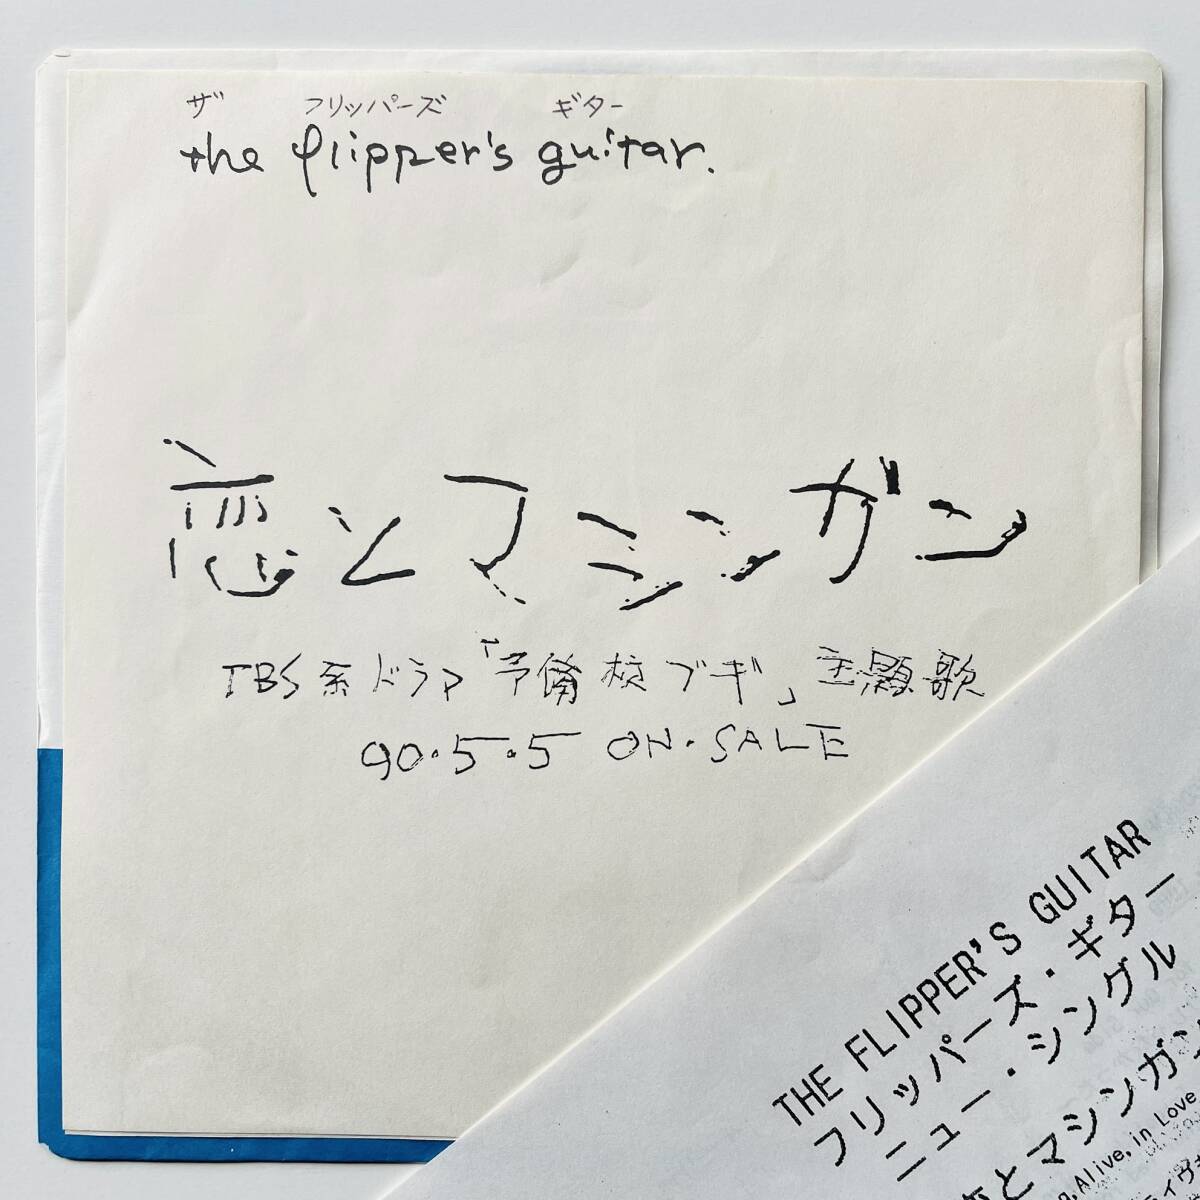 ザ フリッパーズ ギター
the flipper's guitar.
恋とマシンガン
TBS系ドラマ「予備校ブギ」主題歌
90.5.5 ON.SALE
THE FLIPPER'S GUITAR
フリッパーズ・ギター
ニュー・シングル
とマシンガン
Alive, in Love